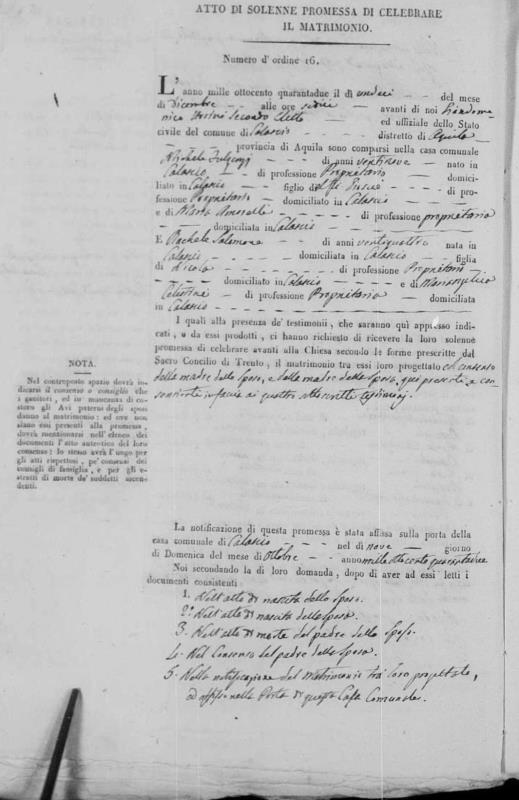 ATTO DI SOLENNE PROMESSA DI CELEBRARE
IL MATRIMONIO.
Numero d' ordine 16.
L'anno mille ottocento quarantadue il dì undeci - - del mese
di Dicembre - - alle ore sedici - avanti di noi
Secondo Eletto - - ed uffiziale dello Stato
civile del comune di Calascio - - - distretto di Aquila -
- provincia di Aquila sono comparsi nella casa comunale
Michele - di anni ventinove - nato in
Calascio - - di professione Proprietario - domici-
liato in Calascio - - figlio di - di pro-
fessione Proprietario - domiciliato in Calascio - -
e di Maria - di professione proprietaria
- domiciliata in Calascio - - -
E Rachele Salomone - di anni ventiquattro nata in
Calascio - - domiciliata in Calascio - figlia
di Nicola - - di professione Proprietario -
domiciliato in Calascio - - e di Mariangelica
Celestina - di professione Proprietaria - domiciliata
in Calascio - -
I quali alla presenza de' testimonii, che saranno quì appresso indi-
cati, e da essi prodotti, ci hanno richiesto di ricevere la loro solenne
promessa di celebrare avanti alla Chiesa secondo le forme prescritte dal
Sacro Concilio di Trento, il matrimonio tra essi loro progettato col consenso
della madre dello Sposo, e della madre della Sposa, qui presente, e con-
senziente in faccia ai quattro testimonj.
NOTA.
Nel contreposto spazio dovrà in-
dicarsi il consenso o consiglio che
i genitori, ed in mancanza di co-
storo gli Avi paterni degli sposi
danno al matrimonio: ed ove non
siano essi presenti alla promessa,
dovrà mentovarsi nell'elenco dei
documenti l'atto autentico del loro
consenso: lo stesso avrà l'uogo per
gli atti rispettosi, pe' consensi dei
consigli di famiglia, e per gli e-
stratti di morte de' suddetti ascen-
denti.
La notificazione di questa promessa è stata affissa sulla porta della
casa comunale di Calascio - - - nel dì nove - giorno
di Domenica del mese di Ottobre - - anno mille ottocento quarantadue
Noi secondando la di loro domanda, dopo di aver ad essi letti i
documenti consistenti
1. Nell'atto di nascita dello Sposo.
2. Nell'atto di nascita della Sposa.
3. Nell'atto di morte del padre dello Sposo.
4. Nel Consenso del padre della Sposa.
5. Nella notificazione del Matrimonio tra loro progettato,
ed affisso nella Porta di questa Casa Comunale.